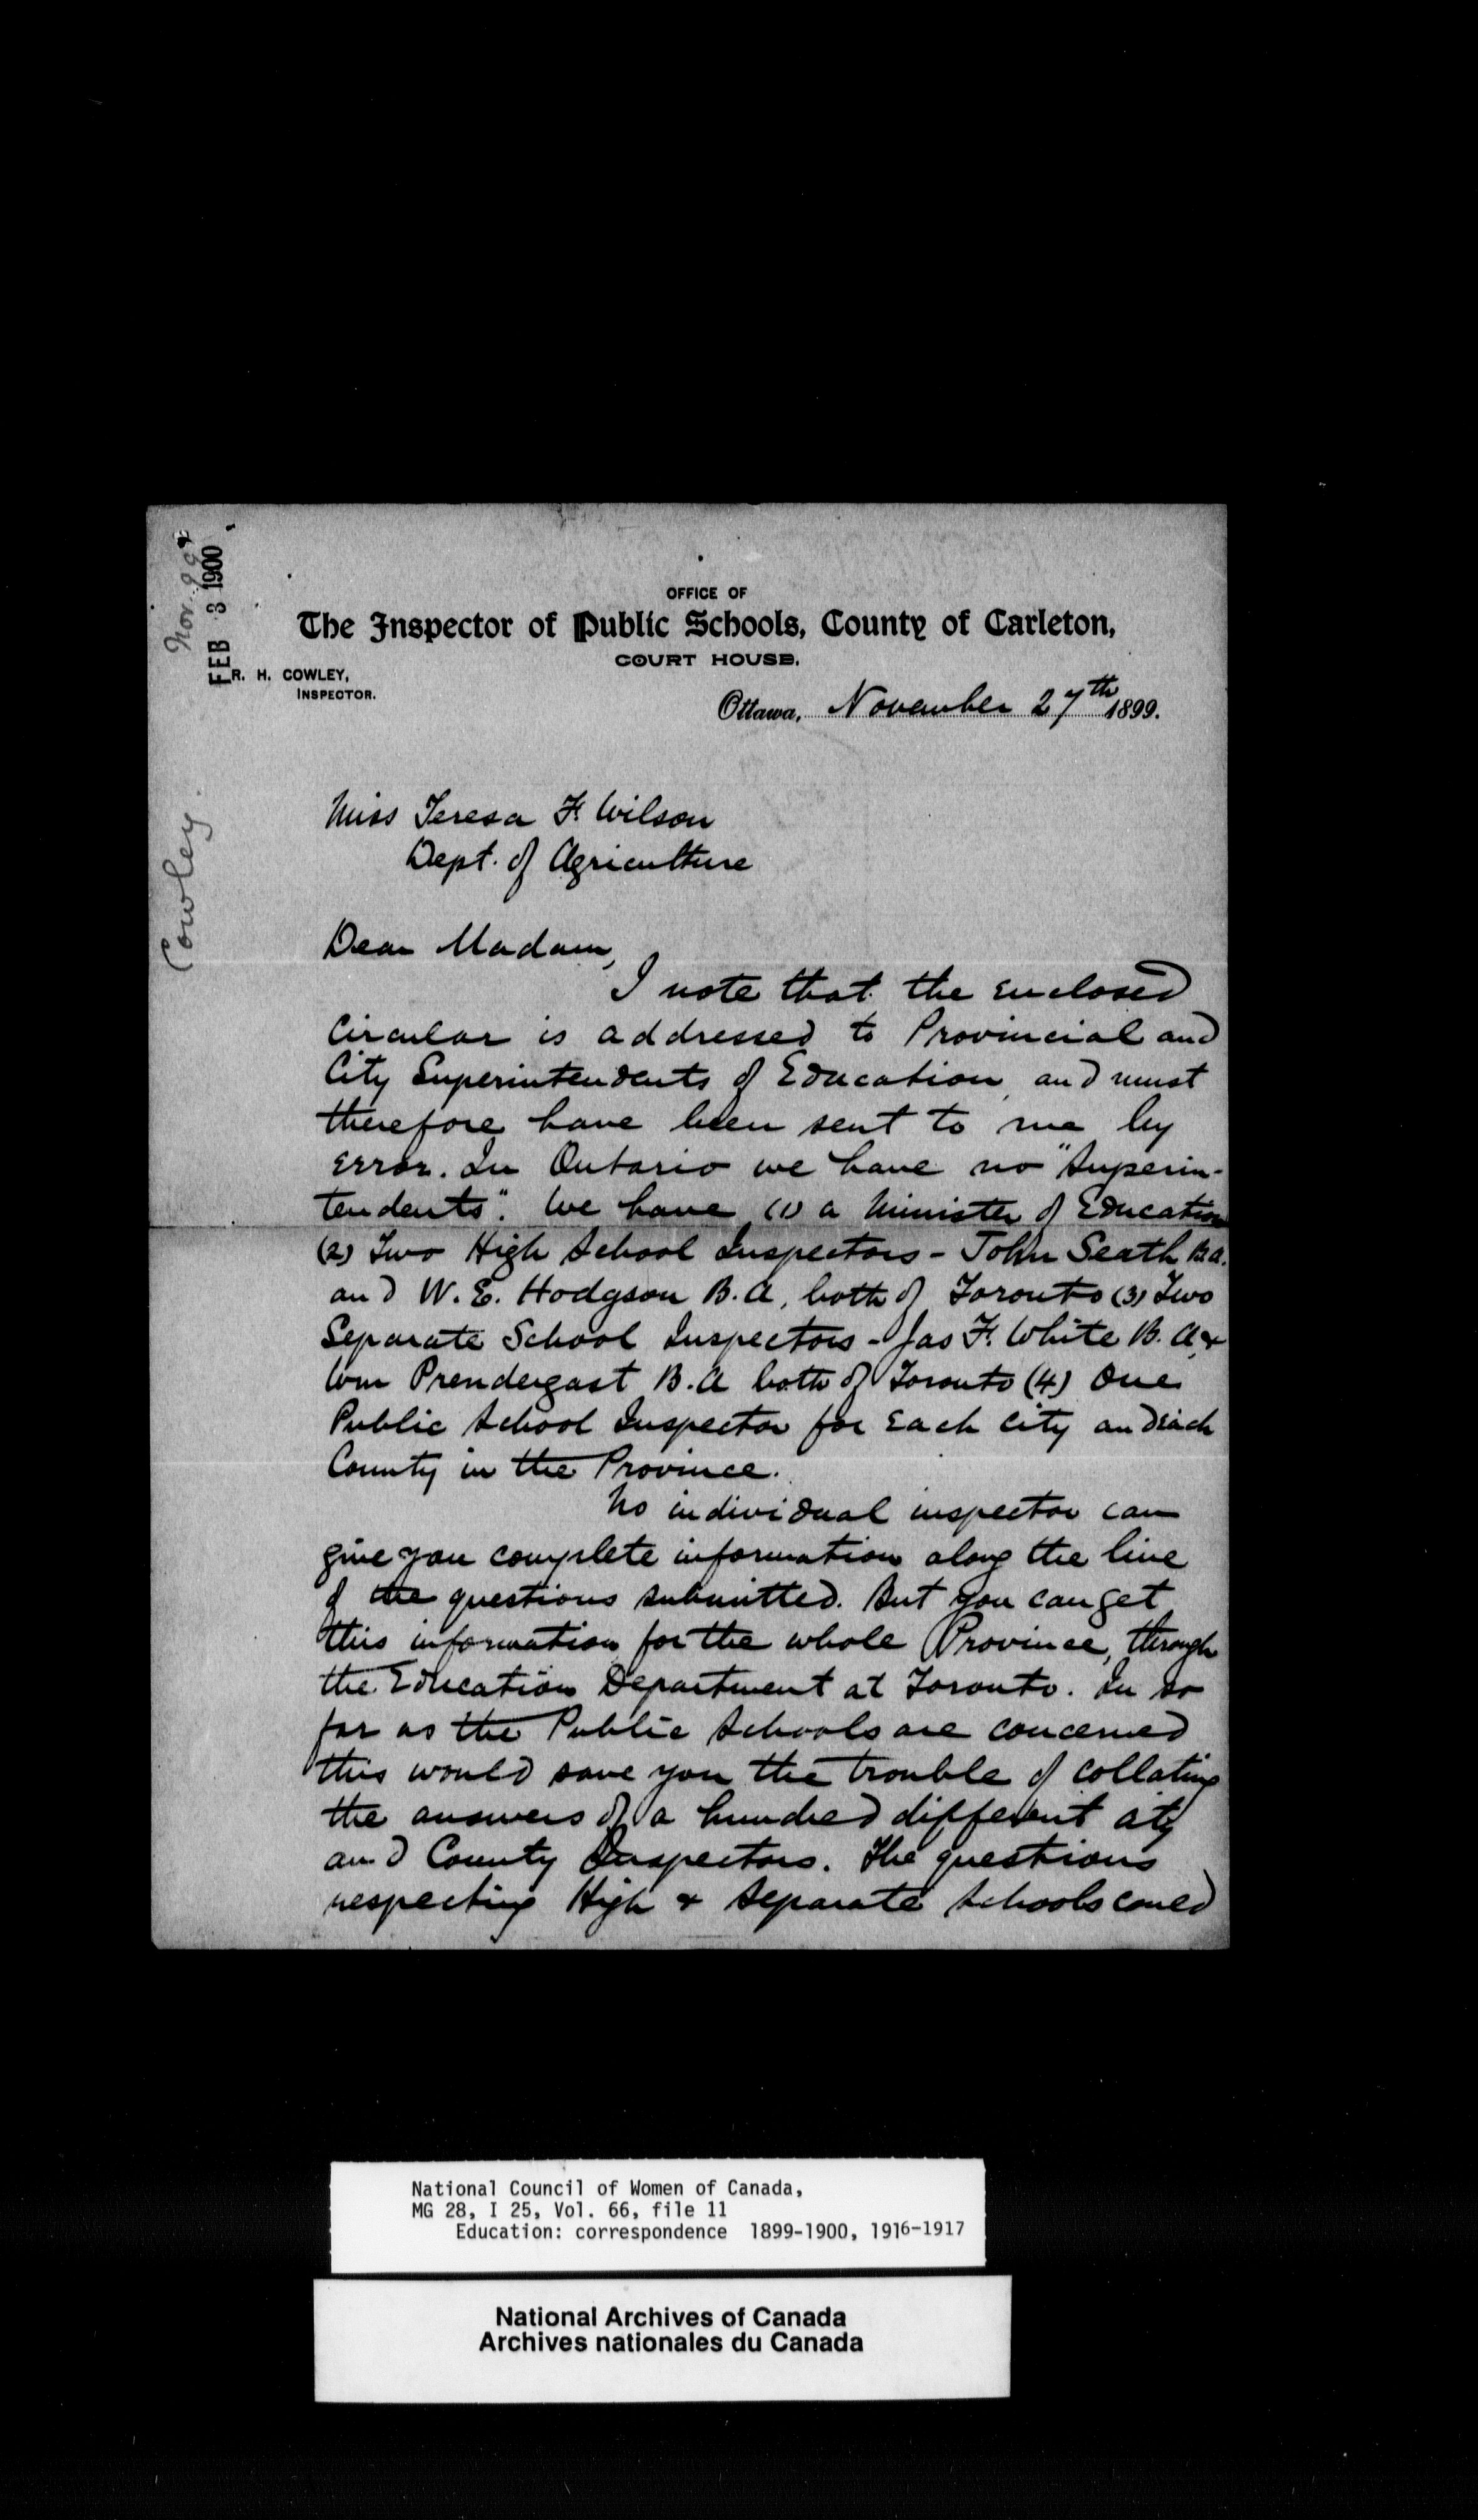 Nov. 99
FEB 3 1900
OFFICE OF
The Inspector of Public Schools, County of Carleton,
COURT HOUSE.
R. H. COWLEY,
INSPECTOR.
Ottawa, November 27th 1899.
Cowley.
Miss Teresa F. Wilson
Dept. of Agriculture
Dear Madam,
I note that the enclosed
Circular is addressed to Provincial and
City Superintendents of Education, and must
therefore have been sent to me by
error. In Ontario we have no "Superin-
tendents". We have (1) a Minister of Education
(2) Two High School Inspectors - John Seath B.A.
and W. E. Hodgson B.A, both of Toronto (3) Two
Separate School Inspectors - Jas F. White B.A, &
Wm Prendergast B.A both of Toronto (4) One
Public School Inspector for Each City and Each
County in the Province.
No individual inspector can
give you complete information along the line
of the questions submitted. But you can get
this information, for the whole Province, through
the Education Department at Toronto. In so
far as the Public Schools are concerned
this would save you the trouble of collating
the answers of a hundred different city
and County Inspectors. The questions
respecting High & Separate Schools could
National Council of Women of Canada,
MG 28, I 25, Vol. 66, file 11
Education: correspondence 1899-1900, 1916-1917
National Archives of Canada
Archives nationales du Canada